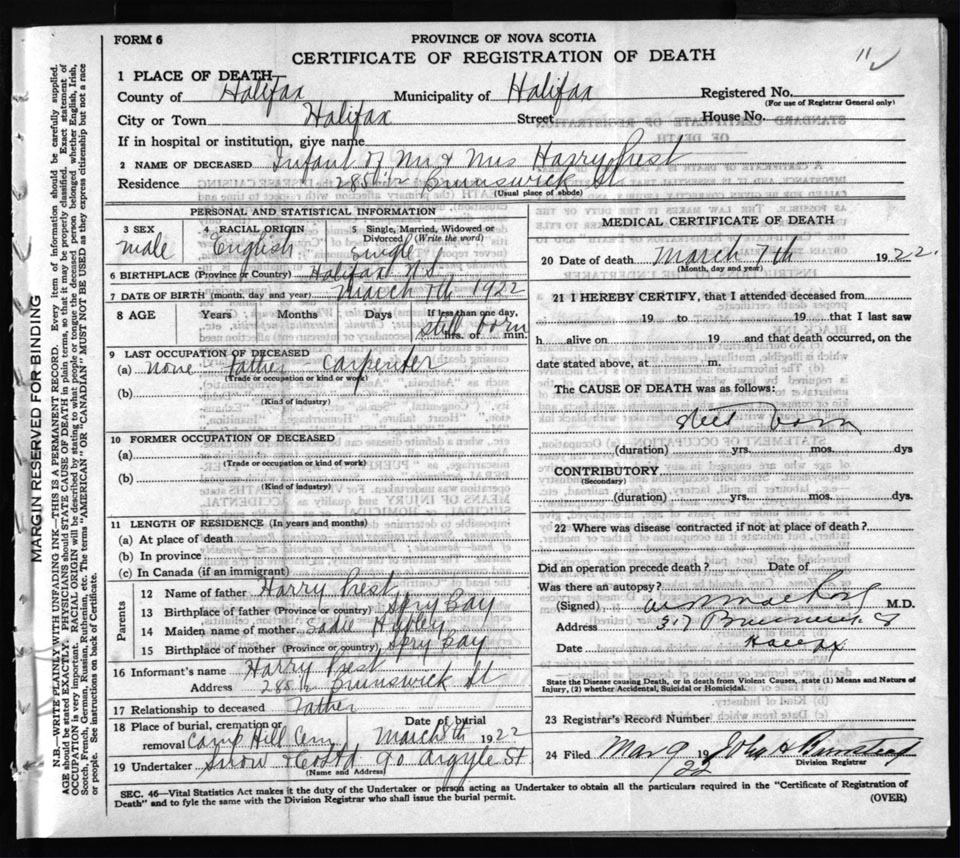 FORM 6
PROVINCE OF NOVA SCOTIA
CERTIFICATE OF REGISTRATION OF DEATH
11
1 PLACE OF DEATH
County of Halifax Municipality of Halifax Registered No.
(For use of Registrar General only)
City or Town Halifax Street House No.
If in hospital or institution, give name
2 NAME OF DECEASED Infant of Mr & Mrs Harry Prest
Residence 285 1/2 Brunswick St
(Usual place of abode)
PERSONAL AND STATISTICAL INFORMATION
3 SEX 4 RACIAL ORIGIN 5 Single, Married, Widowed or Divorced (Write the word)
male English Single
6 BIRTHPLACE (Province or Country) Halifax N.S.
7 DATE OF BIRTH (month, day and year) March 7th 1922
8 AGE Years Months Days If less than one day,
still born
hrs. or min.
9 LAST OCCUPATION OF DECEASED
(a) none Father Carpenter
(Trade or occupation or kind or work)
(b)
(Kind of industry)
10 FORMER OCCUPATION OF DECEASED
(a)
(Trade or occupation or kind of work)
(b)
(Kind of industry)
11 LENGTH OF RESIDENCE (In years and months)
(a) At place of death
(b) In province
(c) In Canada (if an immigrant)
Parents
12 Name of father Harry Prest
13 Birthplace of father (Province or country) Spry Bay
14 Maiden name of mother Sadie Hubley
15 Birthplace of mother (Province or country) Spry Bay
16 Informant's name Harry Prest
Address 285 1/2 Brunswick St
17 Relationship to deceased Father
18 Place of burial, cremation or removal Camp Hill Cem Date of burial March 8th 1922
19 Undertaker Snow & Co Ltd 90 Argyle St
(Name and Address)
MEDICAL CERTIFICATE OF DEATH
20 Date of death March 7th 1922.
(Month, day and year)
21 I HEREBY CERTIFY, that I attended deceased from
19 to 19 that I last saw
h alive on 19 and that death occurred, on the
date stated above, at m.
The CAUSE OF DEATH was as follows:
Still born
(duration) yrs. mos. dys
CONTRIBUTORY
(Secondary)
(duration) yrs. mos. dys.
22 Where was disease contracted if not at place of death?
Did an operation precede death? Date of
Was there an autopsy?
(Signed) M.D.
Address 317 Brunswick St
Date Halifax
State the Disease causing Death, or in death from Violent Causes, state (1) Means and Nature of
Injury, (2) whether Accidental, Suicidal or Homicidal.
23 Registrar's Record Number
24 Filed Mar 9 1922 John H
Division Registrar
SEC. 46—Vital Statistics Act makes it the duty of the Undertaker or person acting as Undertaker to obtain all the particulars required in the "Certificate of Registration of
Death" and to fyle the same with the Division Registrar who shall issue the burial permit.
(OVER)
MARGIN RESERVED FOR BINDING
N.B.—WRITE PLAINLY WITH UNFADING INK—THIS IS A PERMANENT RECORD. Every item of information should be carefully supplied.
AGE should be stated EXACTLY. PHYSICIANS should STATE CAUSE OF DEATH in plain terms, so that it may be properly classified. Exact statement of
OCCUPATION is very important. RACIAL ORIGIN will be described by stating to what people or tongue the deceased person belonged whether English, Irish,
Scotch, French, German, Russian, Ruthenian, etc. The terms "AMERICAN" or "CANADIAN" MUST NOT BE USED as they express citizenship but not a race
or people. See instructions on back of Certificate.